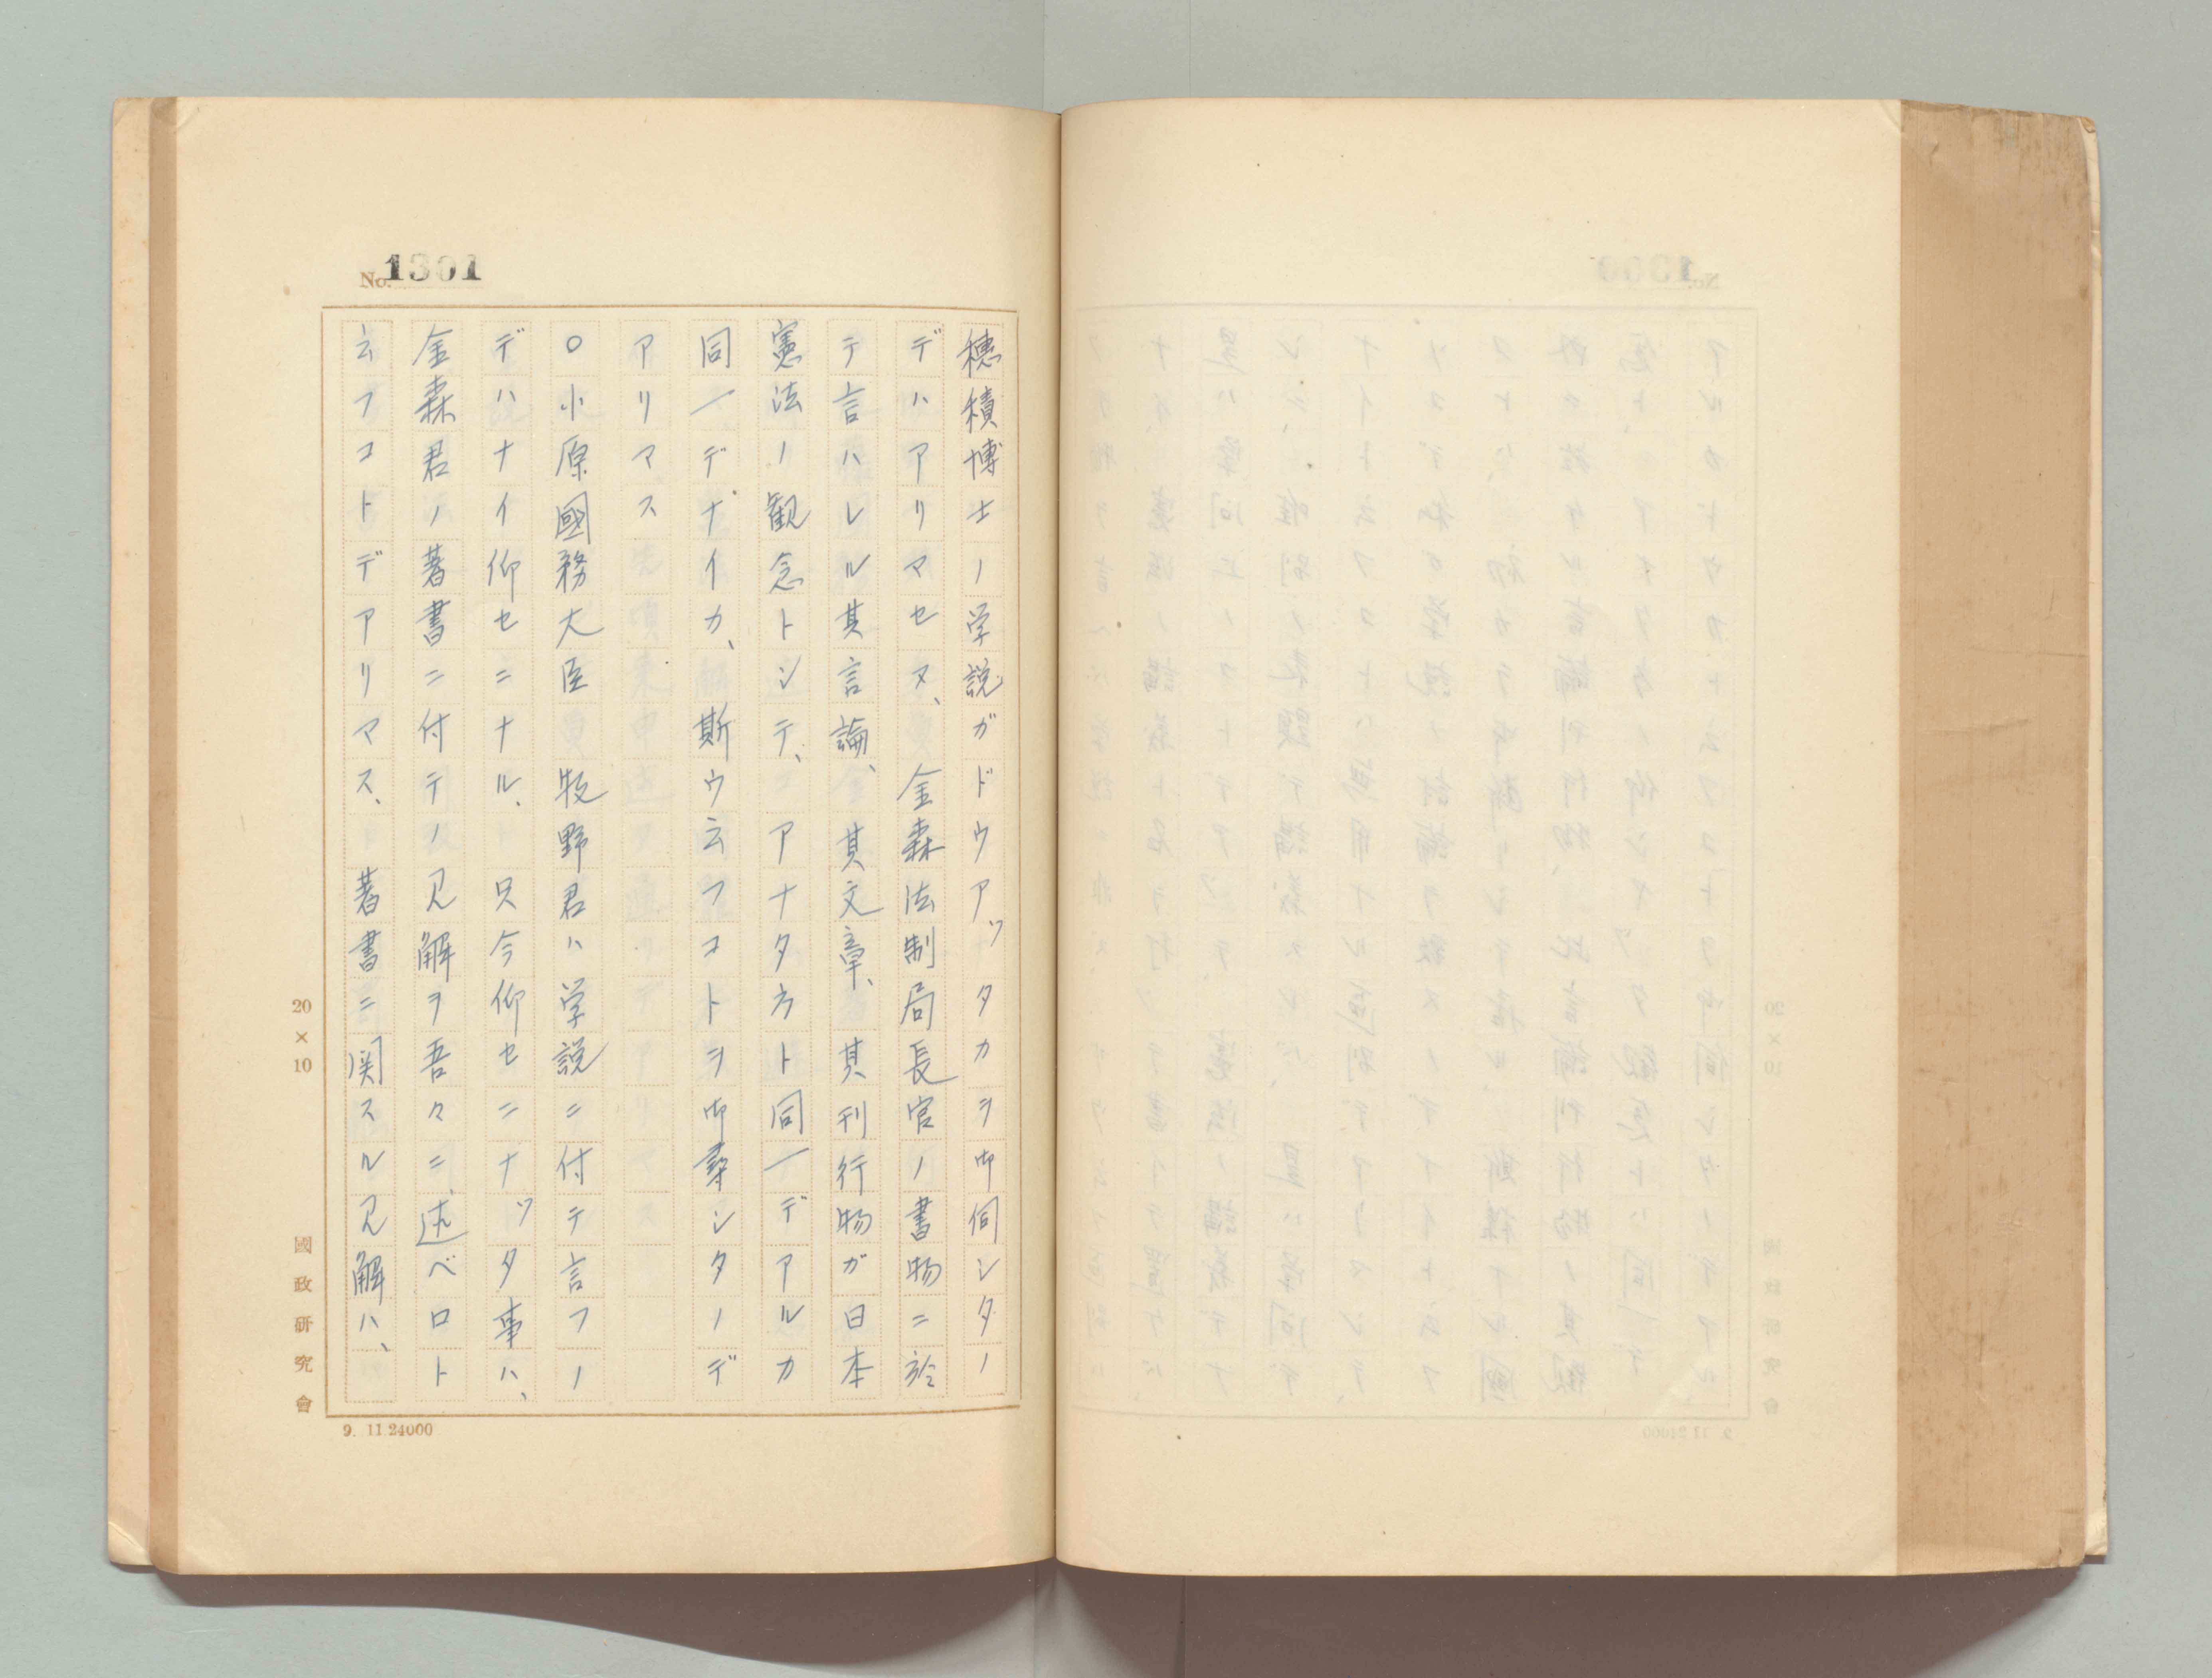 No. 1301
穂積博士ノ学説ガドウアッタカヲ御伺シタノ
デハアリマセヌ、金森法制局長官ノ書物ニ於
テ言ハレル其言論、其文章、其刊行物ガ日本
憲法ノ観念トシテ、アナタ方ト同一デアルカ
同一デナイカ、斯ウ云フコトヲ御尋シタノデ
アリマス
〇小原國務大臣 牧野君ハ学説ニ付テ言フノ
デハナイ仰セニナル、只今仰セニナッタ事ハ、
金森君ノ著書ニ付テノ見解ヲ吾々ニ述ベロト
云フコトデアリマス、著書ニ関スル見解ハ、
20×10
國政研究會
9. 11.24000